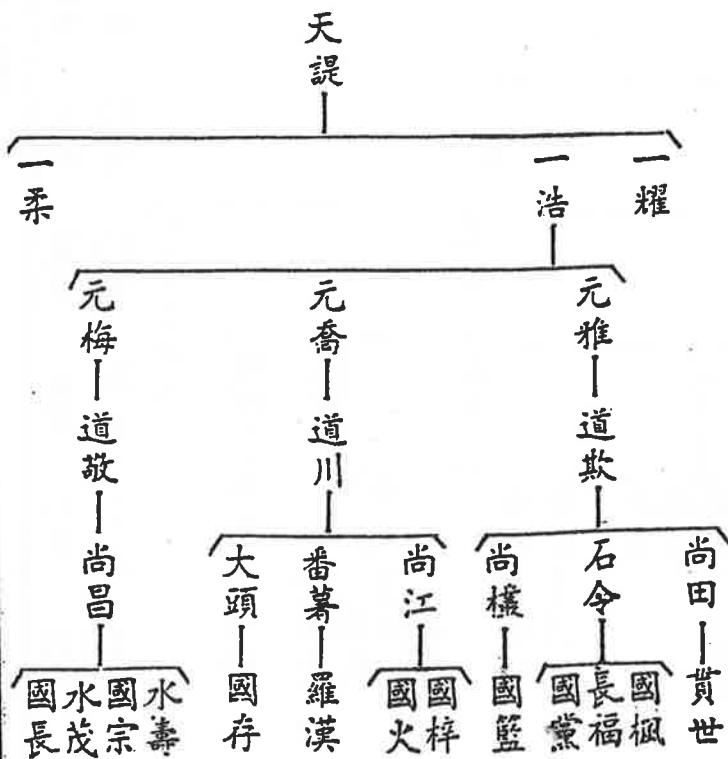 天諟
一耀
一浩
一柔
元雅
元喬
元梅
道欺
道川
道敬
尚田
石令
尚欉
尚江
番薯
大頭
尚昌
貰世
國楓
長福
國黨
國籃
國梓
國火
羅漢
國存
水壽
國宗
水茂
國長